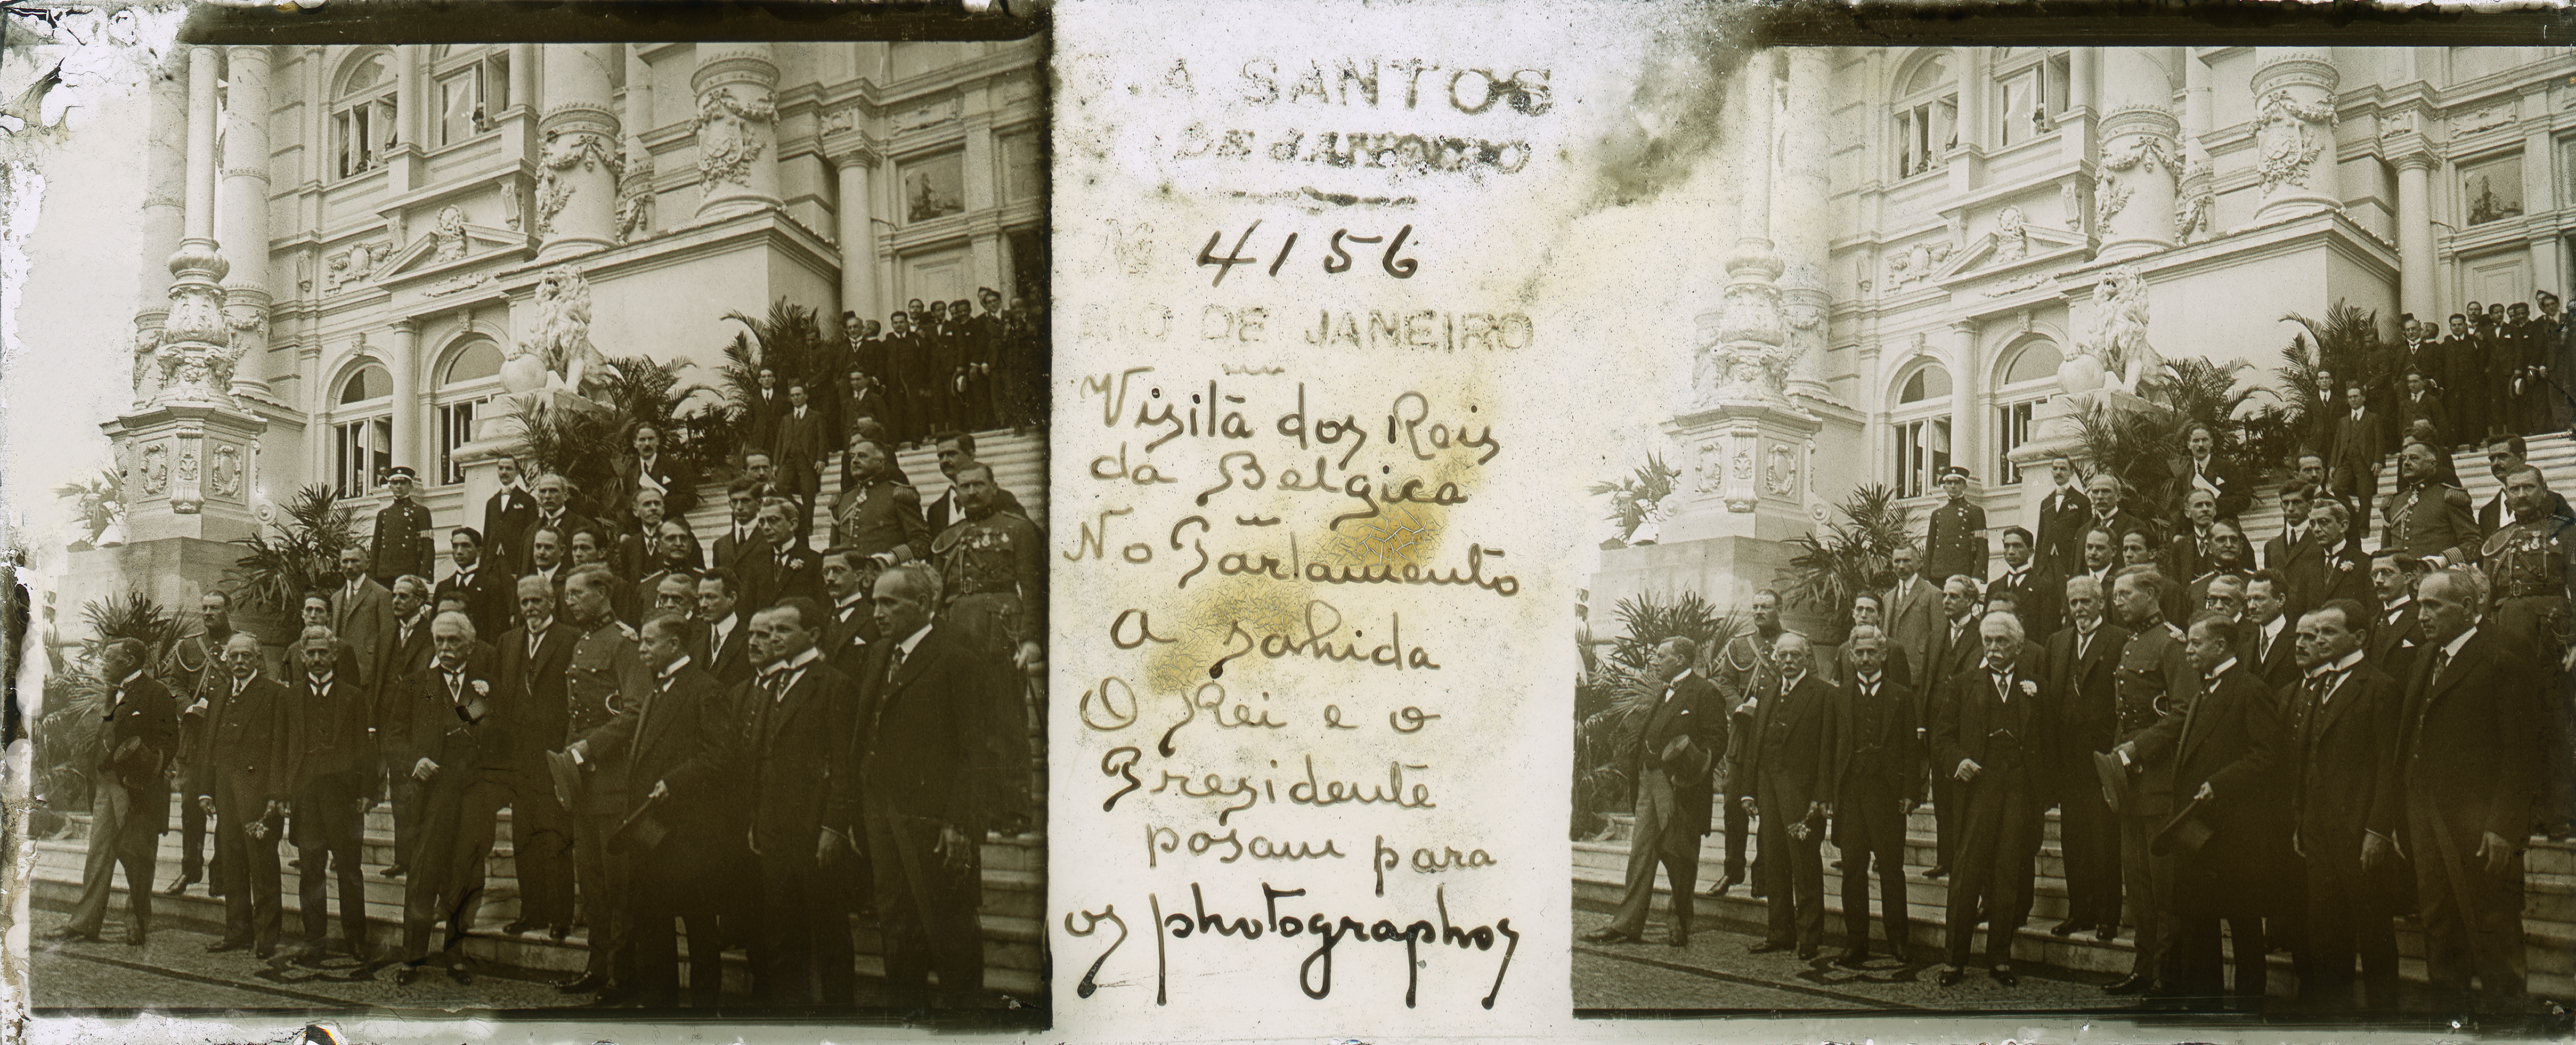 A SANTOS
DE
Nº 4156
RIO DE JANEIRO
Visita dos Reis
da Belgica
No Parlamento
A sahida
O Rei e o
Prezidente
posam para
os photographos